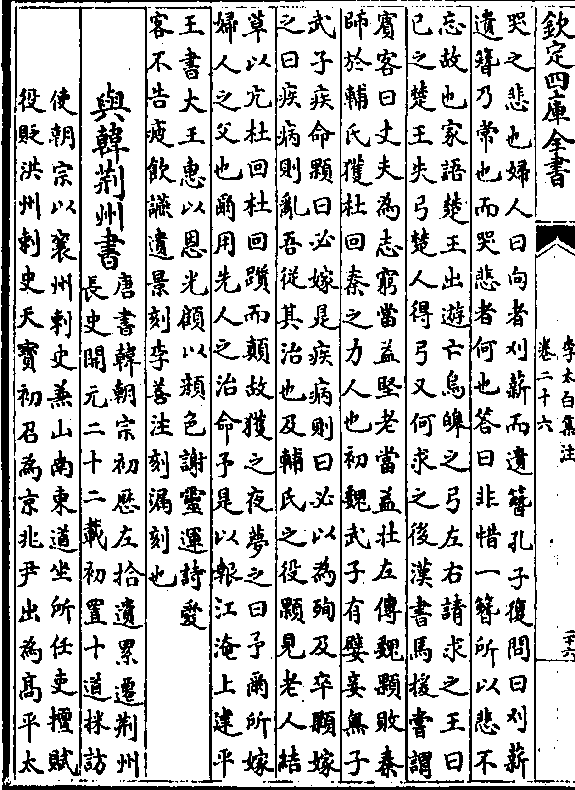 欽定四庫全書
李太白集注
卷二十六
二十六
哭之悲也婦人曰向者刈薪而遺簪孔子復問曰刈薪
遺簪乃常也而哭悲者何也答曰非惜一簪所以悲不
忘故也家語楚王出遊亡烏皡之弓左右請求之王曰
已之楚王失弓楚人得弓又何求之後漢書馬援嘗謂
賓客曰丈夫為志窮當益堅老當益壯左傳魏顆敗秦
師於輔氏獲杜回秦之力人也初魏武子有嬖妾無子
武子疾命顆曰必嫁是疾病則曰必以為殉及卒顆嫁
之曰疾病則亂吾從其治也及輔氏之役顆見老人結
草以亢杜回杜回躓而顛故獲之夜夢之曰予爾所嫁
婦人之父也爾用先人之治命予是以報江淹上建平
王書大王惠以恩光顧以顏色謝靈運詩愛
客不告疲飲讌遺景刻李善注刻漏刻也
與韓荆州書
唐書韓朝宗初厯左拾遺累遷荆州
長史開元二十二載初置十道採訪
使朝宗以襄州刺史兼山南東道坐所任吏擅賦
役貶洪州刺史天寳初召為京兆尹出為髙平太